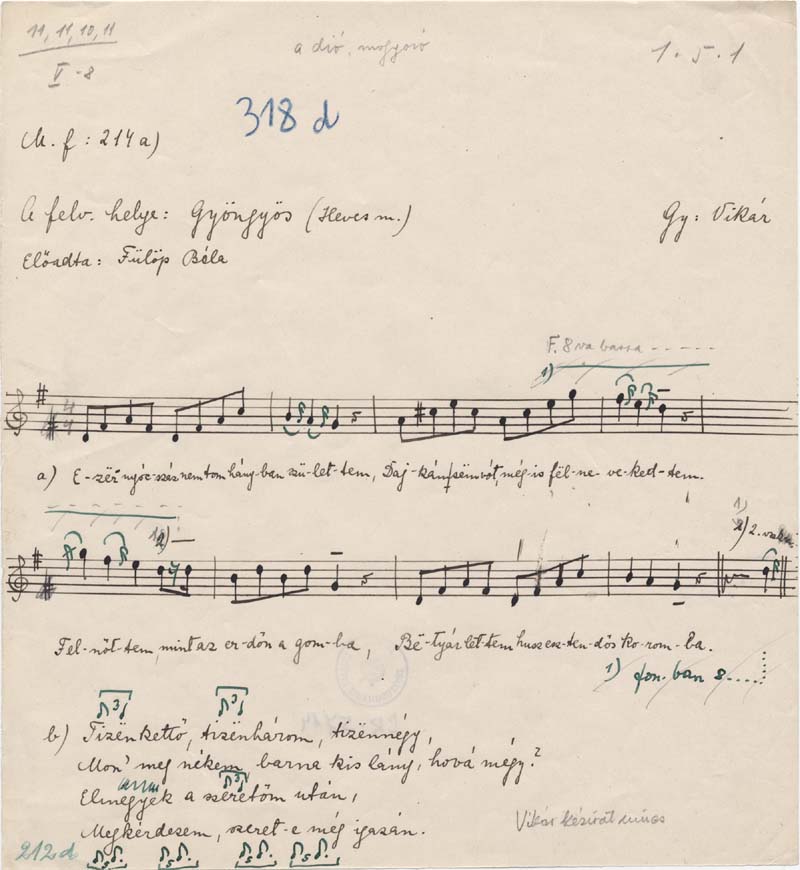 11, 11, 10, 11
V - 8
a dió, mogyoró
1 . 5 . 1
318 d
M. f : 214 a)
A felv. helye: Gyöngyös (Heves m.)
Gy: Vikár
Előadta: Fülöp Béla
F. 8va bassa - - - - -
1)
a) E-zër nyóc-száz nem tom hány-ban szü-let-tem, Daj-kám sëm vót, még-is fël-ne-ve-ked-tem.
2)
1)
2) 2. vsz.
Fel-nőt-tem, mint az er-dőn a gom-ba, Bë-tyár let-tem husz esz-ten-dős ko-rom-ba.
1) fon.-ban 8.....
b) Tizënkettő, tizënhárom, tizënnégy,
Mon' meg nékem barna kis lány, hová mégy?
Elmegyek a szeretőm után,
Megkérdezem, szeret-e még igazán.
Vikár kézirat nincs
212 d